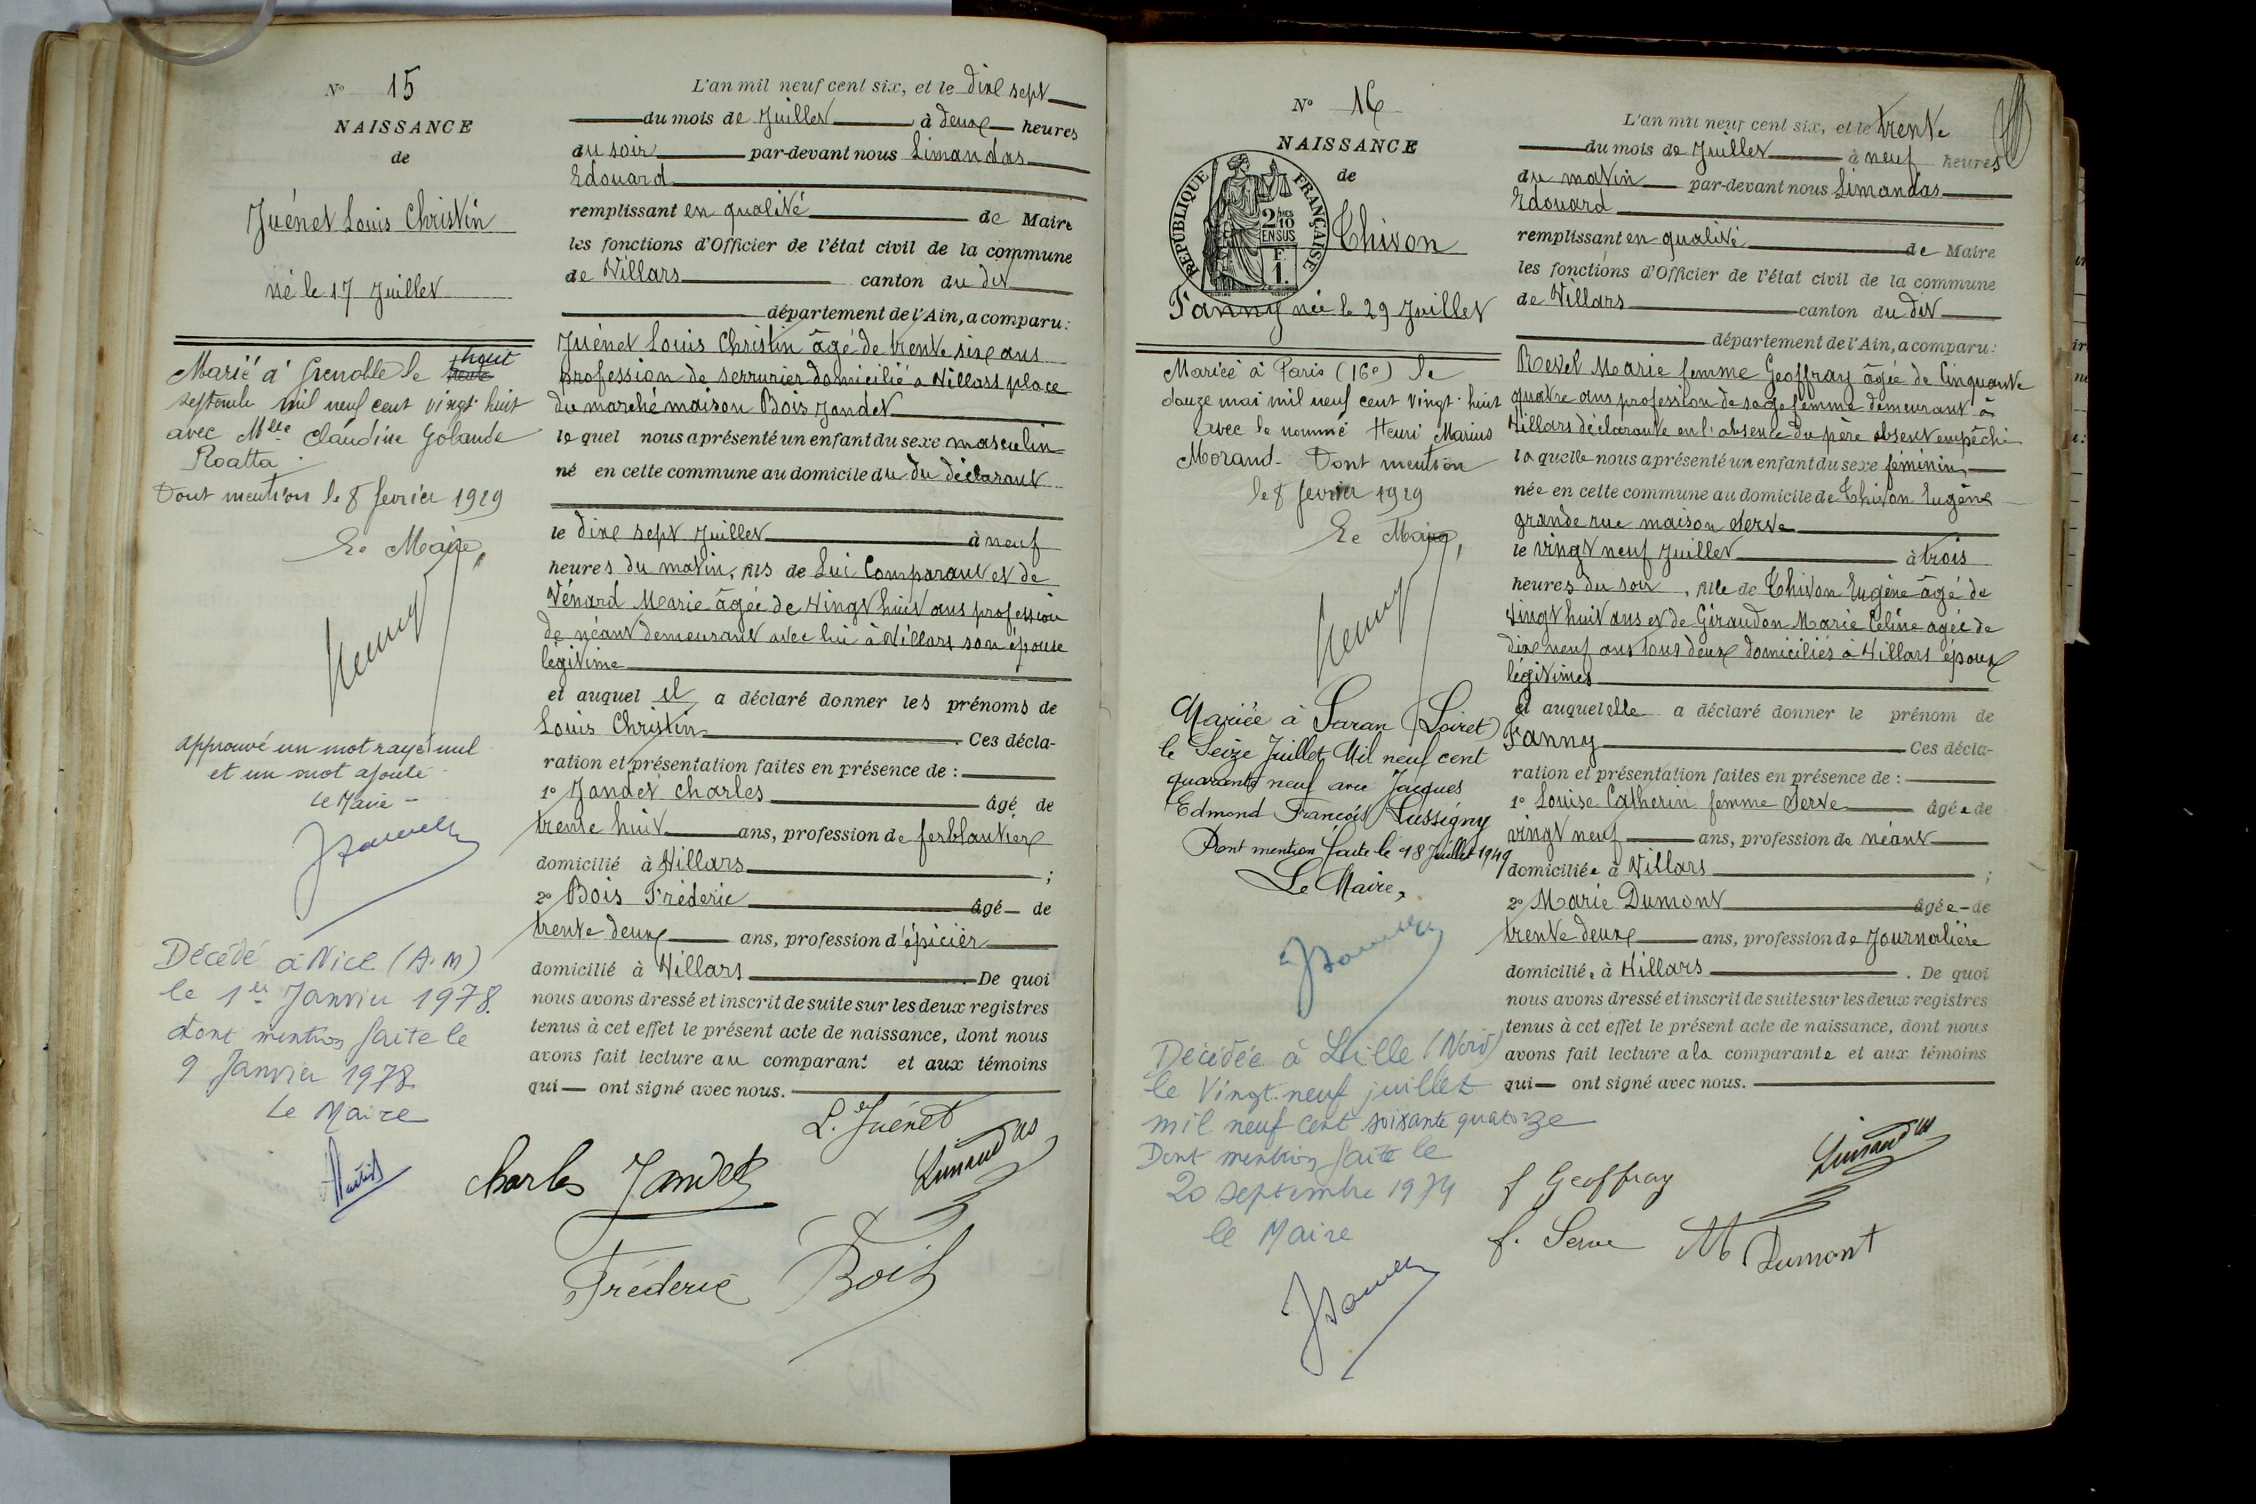 N° 15
NAISSANCE
de
Juénet Louis Christin
né le 17 Juillet
Marié à Grenoble le huit
septembre mil neuf cent vingt huit
avec Mlle Claudine Yolande
Roatta.
Dont mention le 8 fevrier 1929
Le Maire,
approuvé un mot rayé nul
et un mot ajouté
Le Maire
Décédé à Nice (A.M)
le 1er Janvier 1978.
dont mention faite le
9 Janvier 1978
Le Maire
L'an mil neuf cent six, et le dix sept
du mois de Juillet à deux heures
du soir par-devant nous Limandas
Edouard
remplissant en qualité de Maire
les fonctions d'Officier de l'état civil de la commune
de Villars canton du dit
département de l'Ain, a comparu:
Juénet Louis Christin âgé de trente six ans
profession de serrurier domicilié à Villars place
du marché maison Bois Jandet
le quel nous a présenté un enfant du sexe masculin
né en cette commune au domicile du du déclarant
le dix sept Juillet à neuf
heures du matin, fils de Lui Comparant et de
Vénard Marie âgée de vingt huit ans profession
de néant demeurant avec lui à Villars son épouse
légitime
et auquel il a déclaré donner les prénoms de
Louis Christin. Ces décla-
ration et présentation faites en présence de :
1° Jandet Charles âgé de
trente huit ans, profession de ferblantier
domicilié à Villars ;
2° Bois Fréderic âgé de
trente deux ans, profession d'épicier
domicilié à Villars. De quoi
nous avons dressé et inscrit de suite sur les deux registres
tenus à cet effet le présent acte de naissance, dont nous
avons fait lecture au comparant et aux témoins
qui ont signé avec nous.
L. Juénet
Charles Jandet
Limandas
Fréderic Bois
N° 16
NAISSANCE
de
RÉPUBLIQUE FRANÇAISE
2/10
EN SUS
F.
1.
Thivon
Fanny née le 29 Juillet
Mariée à Paris (16e) le
douze mai mil neuf cent vingt-huit
avec le nommé Henri Marius
Morand. Dont mention
le 8 fevrier 1929
Le Maire,
Mariée à Saran (Loiret)
le Seize Juillet Mil neuf cent
quarante neuf avec Jacques
Edmond François Lussigny
Dont mention faite le 18 Juillet 1949
Le Maire,
Décédée à Lille (Nord)
le Vingt-neuf juillet
mil neuf cent soixante quatorze
Dont mention faite le
20 septembre 1974
le Maire
L'an mil neuf cent six, et le trente
du mois de Juillet à neuf heures
du matin par-devant nous Limandas
Edouard
remplissant en qualité de Maire
les fonctions d'Officier de l'état civil de la commune
de Villars canton du dit
département de l'Ain, a comparu:
Revel Marie femme Geoffray âgée de Cinquante
quatre ans profession de sage femme demeurant à
Villars déclarante en l'absence du père absent empêché
la quelle nous a présenté un enfant du sexe féminin
née en cette commune au domicile de Thivon Eugène
grande rue maison Serve
le vingt neuf Juillet à trois
heures du soir, fille de Thivon Eugène âgé de
vingt huit ans et de Giraudon Marie Céline agée de
dix neuf ans tous deux domiciliés à Villars époux
légitimes
et auquel elle a déclaré donner le prénom de
Fanny Ces décla-
ration et présentation faites en présence de :
1° Louise Catherin femme Serve âgée de
vingt neuf ans, profession de néant
domiciliée à Villars ;
2° Marie Dumont âgée de
trente deux ans, profession de Journalière
domiciliée à Villars. De quoi
nous avons dressé et inscrit de suite sur les deux registres
tenus à cet effet le présent acte de naissance, dont nous
avons fait lecture a la comparante et aux témoins
qui ont signé avec nous.
f Geoffray
Limandas
f. Serve
M Dumont